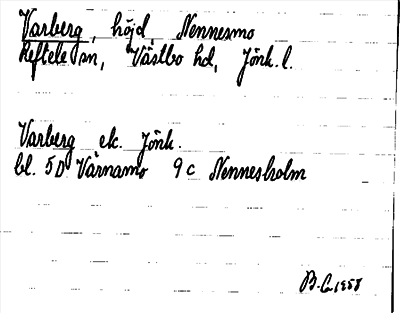 Varberg, höjd, Nennesmo
Reftele sn, Västbo hd, Jönk. l.
Varberg ek. Jönk.
bl. 5D Värnamo 9c Nennesholm
B.L. 1958